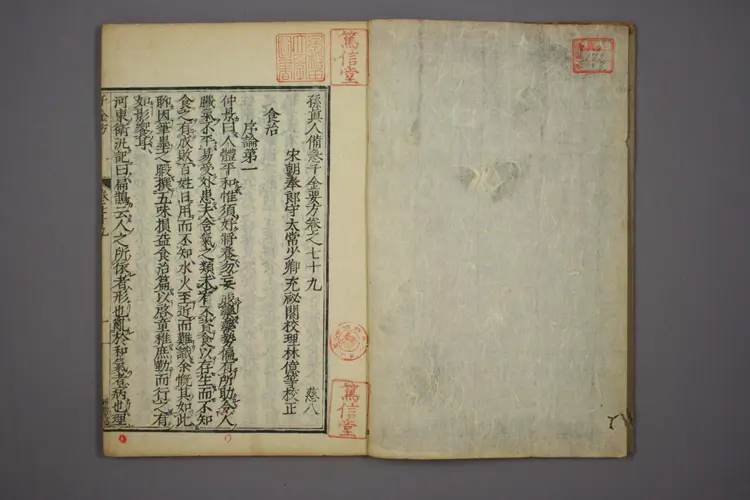 孫真人備急千金要方卷之七十九
宋朝奉郎守太常少卿充祕閣校理林億等校正 慈八
食治
序論第一
仲景曰人體平和惟須好將養勿妄服藥藥勢偏有所助令人
臟氣不平易受外患夫含氣之類未有不資食以存生而不知
食之有成敗百姓日用而不知水火至近而難識余慨其如此
聊因筆墨之暇撰五味損益食治篇以啓童稚庶勤而行之有
如影響耳
河東衛汛記曰扁鵲云人之所依者形也亂於和氣者病也理
篤信堂
篤信堂